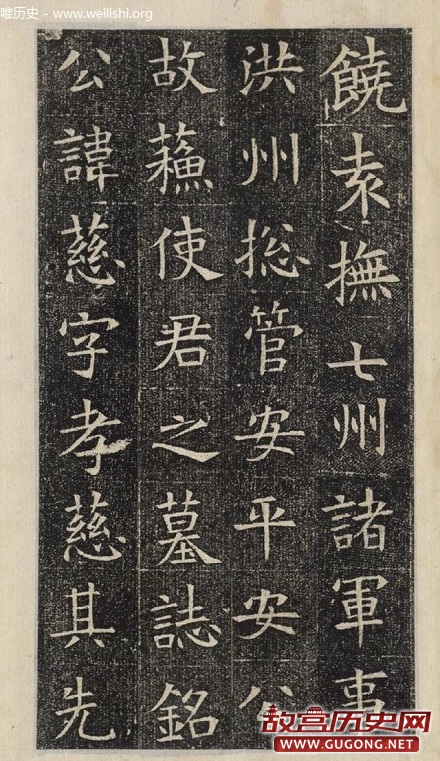 唯历史 - www.weilishi.org
饒袁撫七州諸軍事
洪州捴管安平安公
故蘓使君之墓誌銘
公諱慈字孝慈其先
故宫历史网
WWW.GUGONG.NET